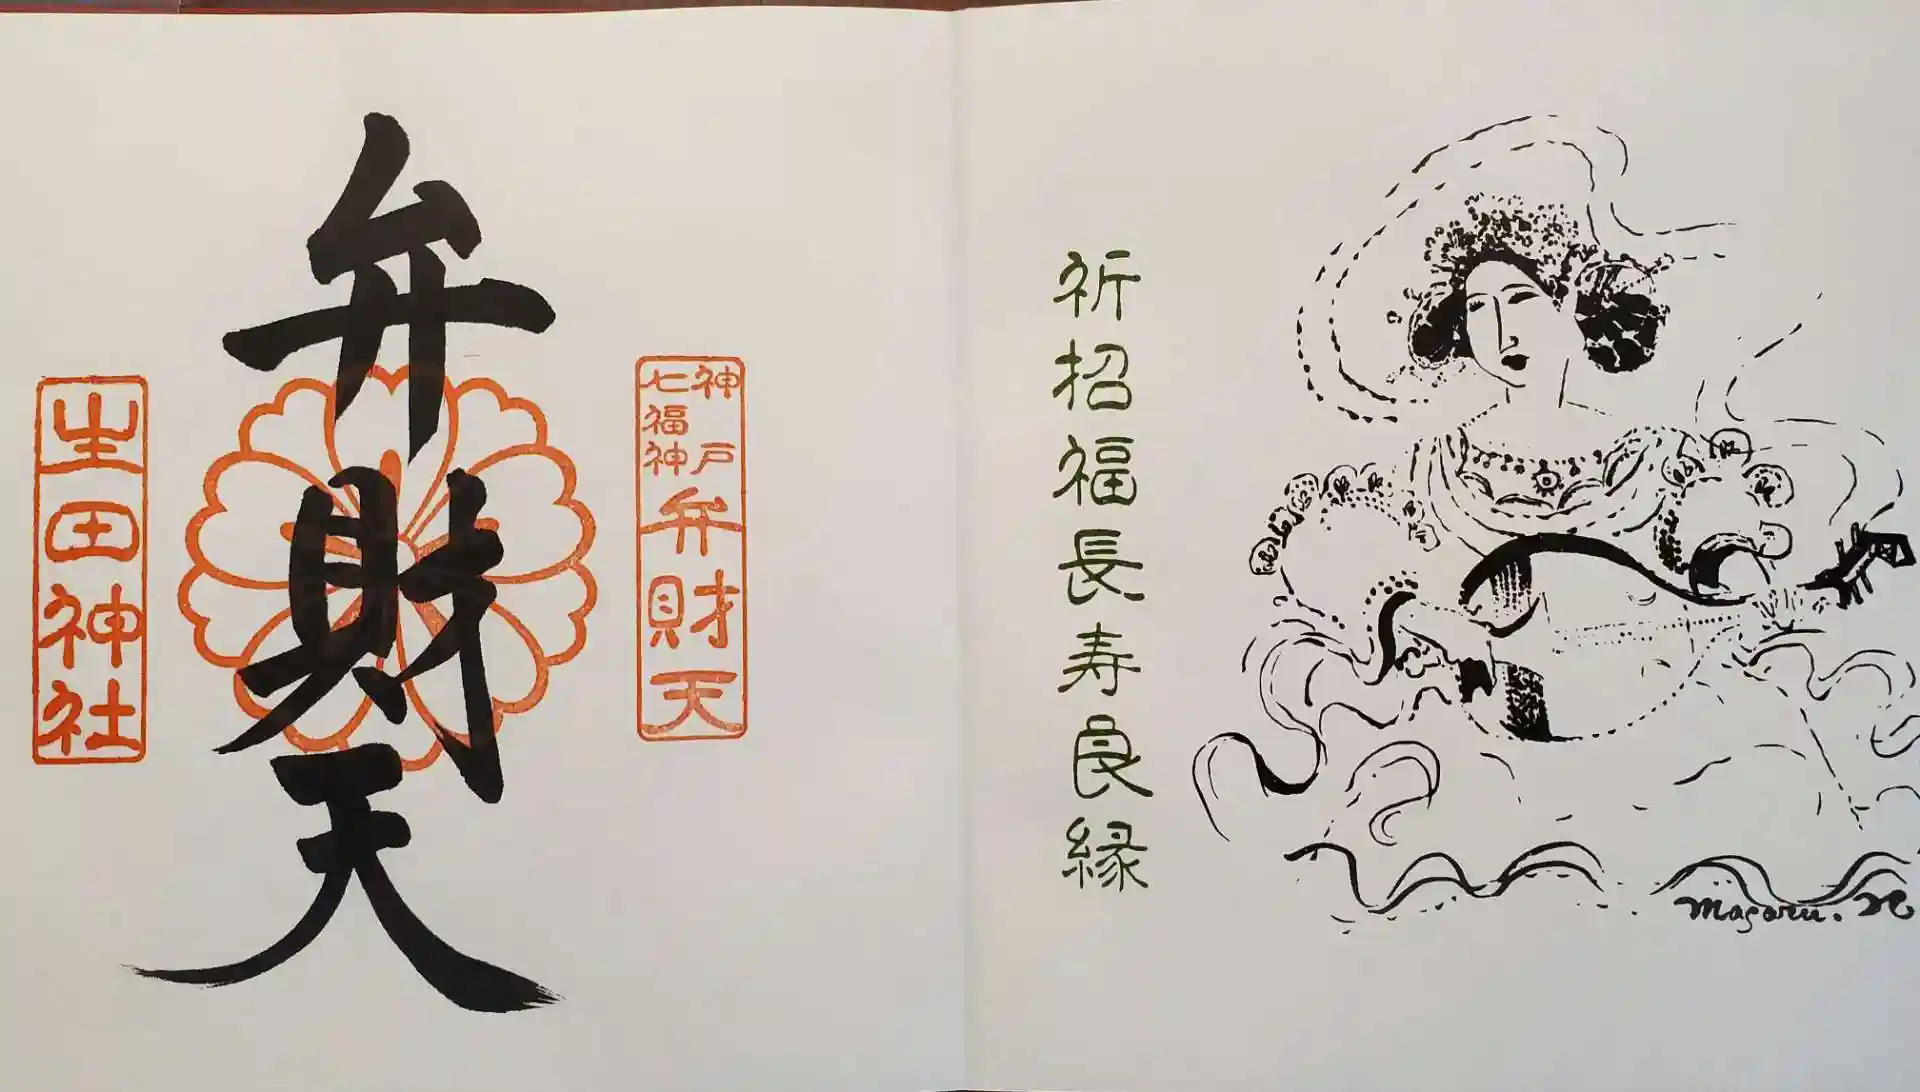 祈招福長寿良縁
Masaru. N
神戸
七福神
弁財天
弁財天
生田神社